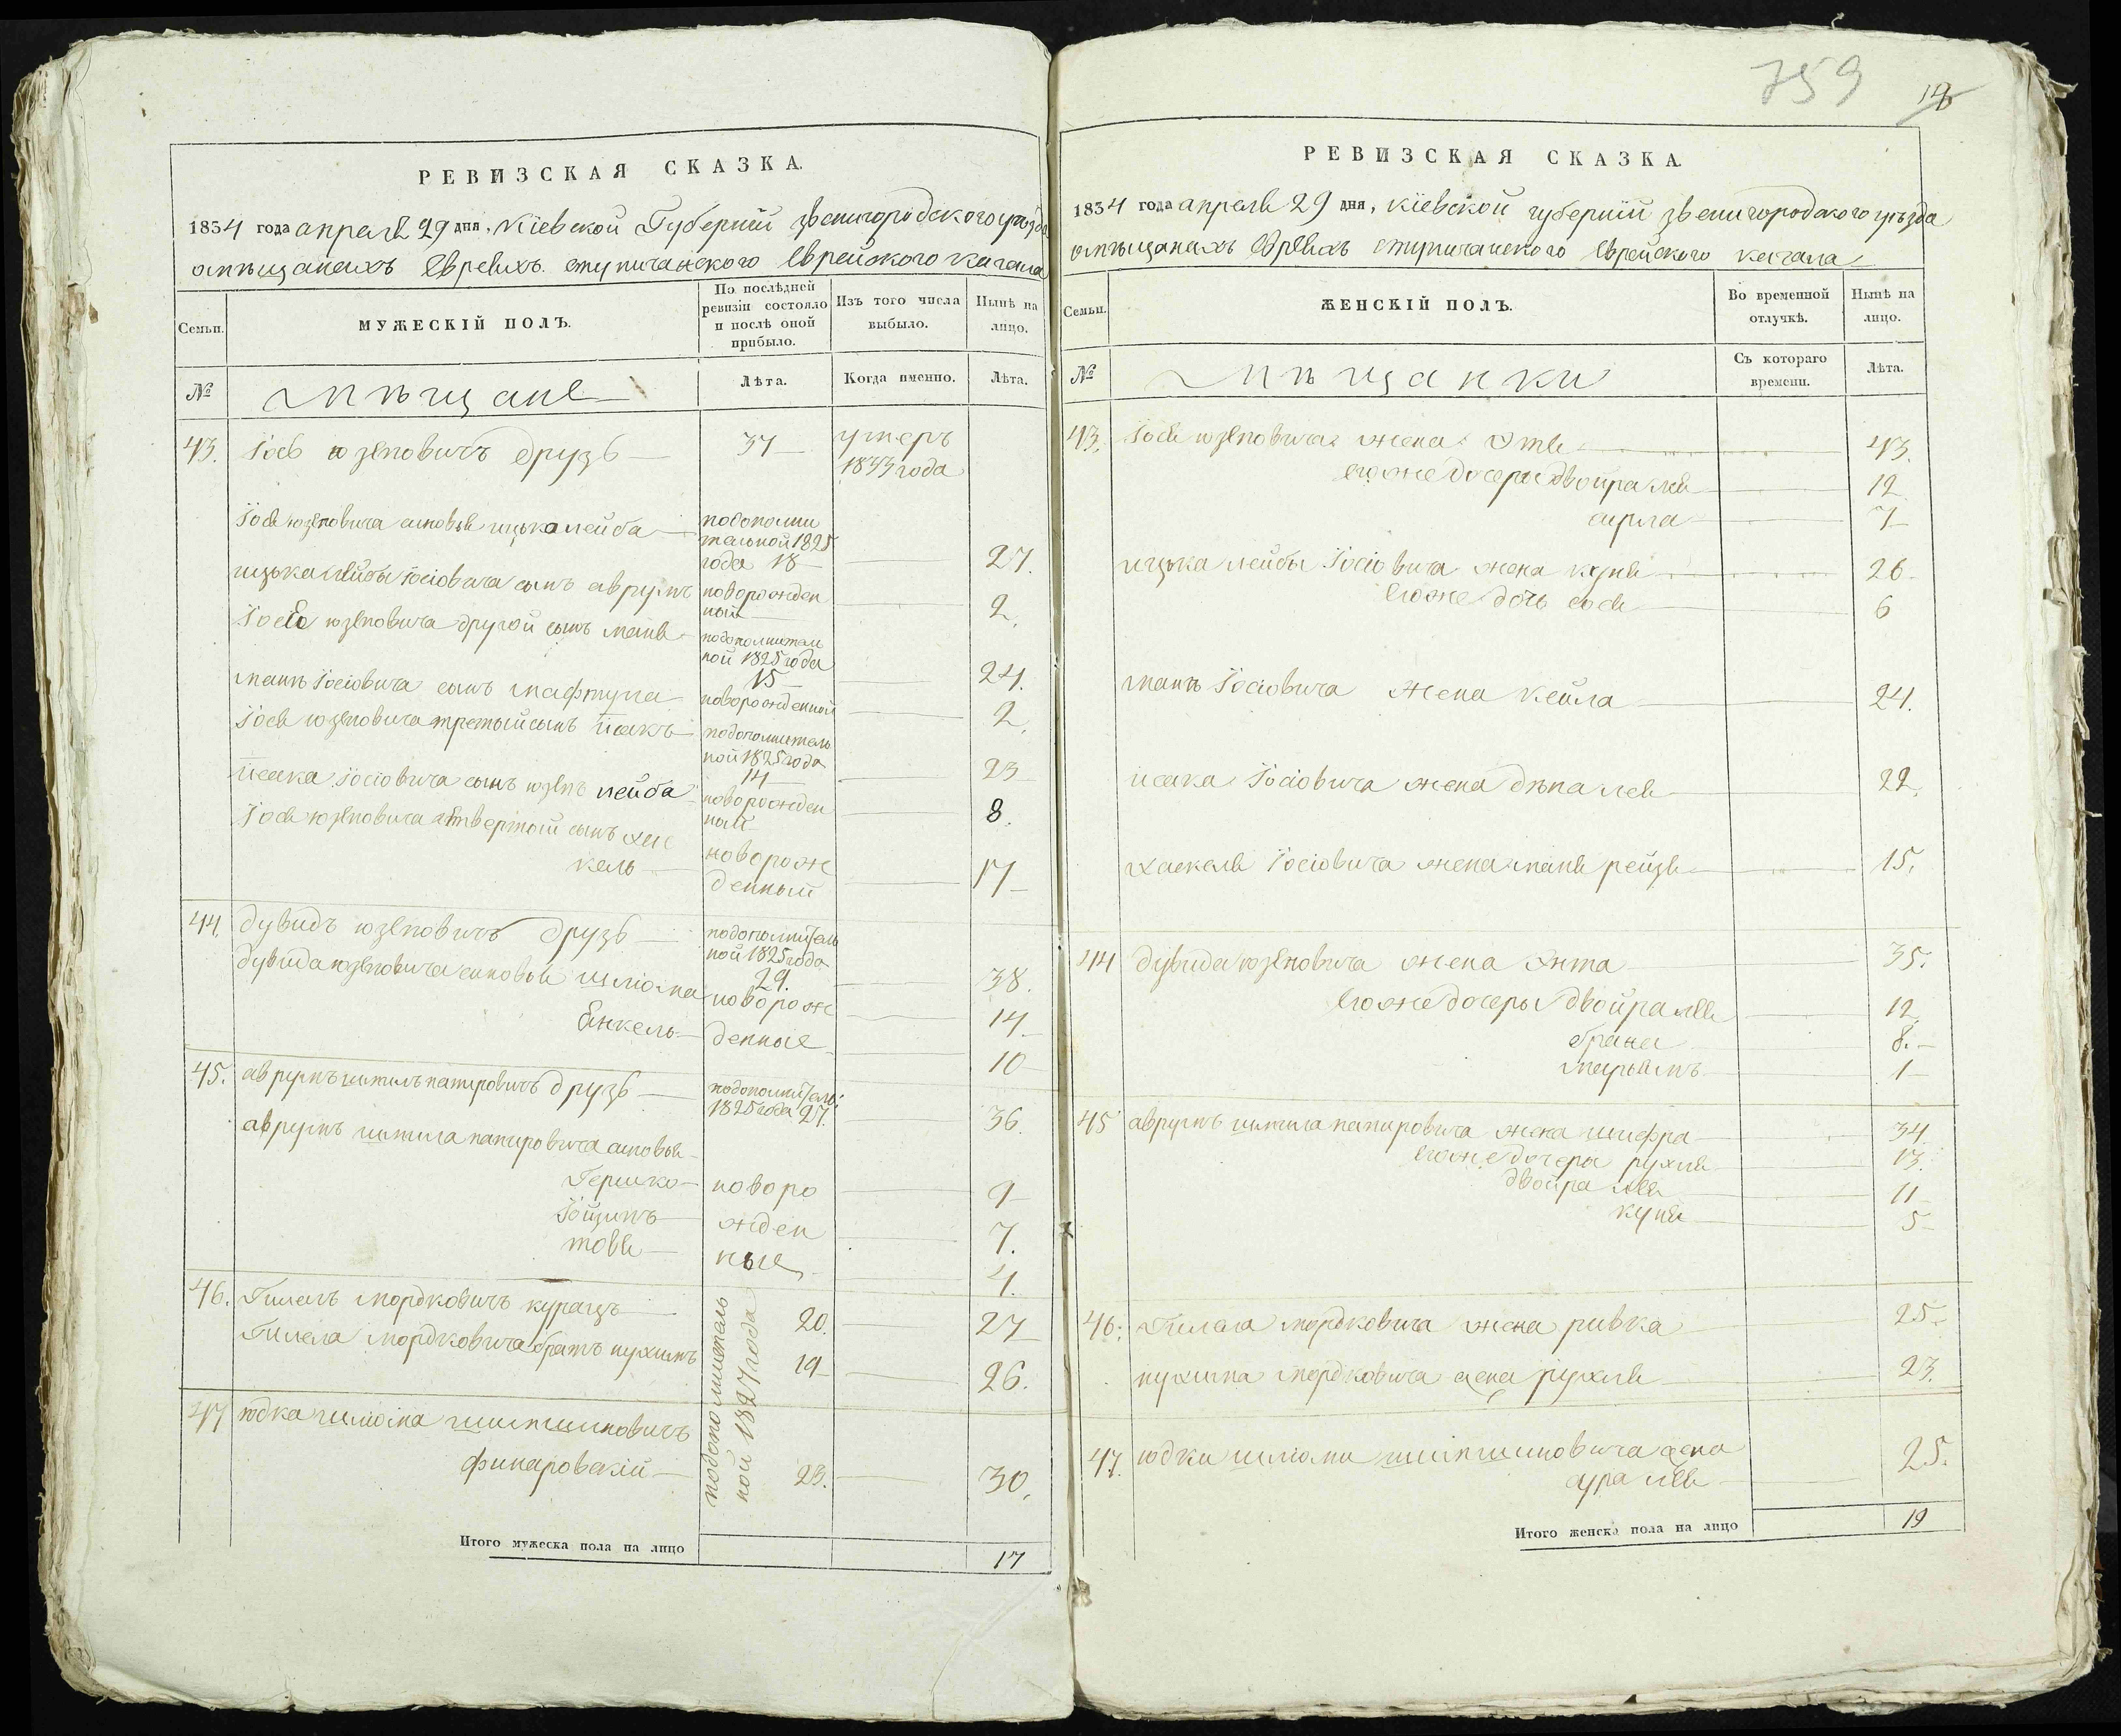 РЕВИЗСКАЯ СКАЗКА.
1834 года апреля 29 дня, Кіевской Губерніи звенигородского уѣзда
омѣщанахъ Евреихъ ступичанского Еврейского кагала
Семьи.
МУЖЕСКІЙ ПОЛЪ.
По послѣдней ревизіи состояло и послѣ оной прибыло.
Изъ того числа выбыло.
Нынѣ на лицо.
№
Мѣщане
Лѣта.
Когда именно.
Лѣта.
43. Іось юзеповичъ друзь 37 умеръ
1833 года
Іося юзеповича сыновья ицько лейба подополни
тельной 1825
года 18 27.
ицька лейбы Іосіовича сынъ аврумъ новорожден
ный 2.
Іося юзеповича другой сынъ маня подополнитель
ной 1825 года
15 24.
маня Іосіовича сынъ мафтула новорожденной 2.
Іося юзеповича третый сынъ исакъ подополнитель
ной 1825 года
14 23
исака Іосіовича сынъ юзепъ лейба новорожден
ный 8.
Іося юзеповича четвертой сынъ хас
кель новорож
денный 17
44. дувидъ юзеповичъ друзь подополнитель
ной 1825 года
29. 38.
дувида юзеповича сыновья шліома новорож 14.
Янкель денные 10
45. аврумъ шмилъ папировичъ друзь подополнитель:
1825 года 27. 36.
аврумъ шмила папировича сыновья
Гершко новоро 9
Іоципъ жден 7.
товя ные 4.
46. Гилель мордковичъ курацъ 20. 27
Гилела мордковича братъ нухимъ 19 26.
подополнитель
ной 1827 года
47 юдка шліома шимшиновичъ
финаровскій 23. 30.
Итого мужеска пола на лицо 17
759
РЕВИЗСКАЯ СКАЗКА.
1834 года апреля 29 дня, кіевской губерніи звенигородского уѣзда
омѣщанахъ Евреихъ ступичанского Еврейского кагала
Семьи.
ЖЕНСКІЙ ПОЛЪ.
Во временной отлучкѣ.
Нынѣ на лицо.
№
Мѣщанки
Съ котораго времени.
Лѣта.
43. Іося юзеповича жена Этя 43.
егоже дочеры двойра лея 12.
сурла 7
ицька лейбы Іосіовича жена куня 26.
егоже дочь сося 6
маня Іосіовича жена кейла 24.
исака Іосіовича жена дына лея 22.
хаскеля Іосіовича жена маня рейзя 15.
44 дувида юзеповича жена Энта 35.
егоже дочеры двойра лея 12.
брана 8.
марьямъ 1
45 аврумъ шмила папировича жена шифра 34.
егоже дочеры рухля 13.
двойра лея 11
куня 5
46. Гилела мордковича жена ривка 25.
нухима мордковича жена рухля 23.
47. юдки шліомы шимшиновича жена
сура лея 25.
Итого женска пола на лицо 19